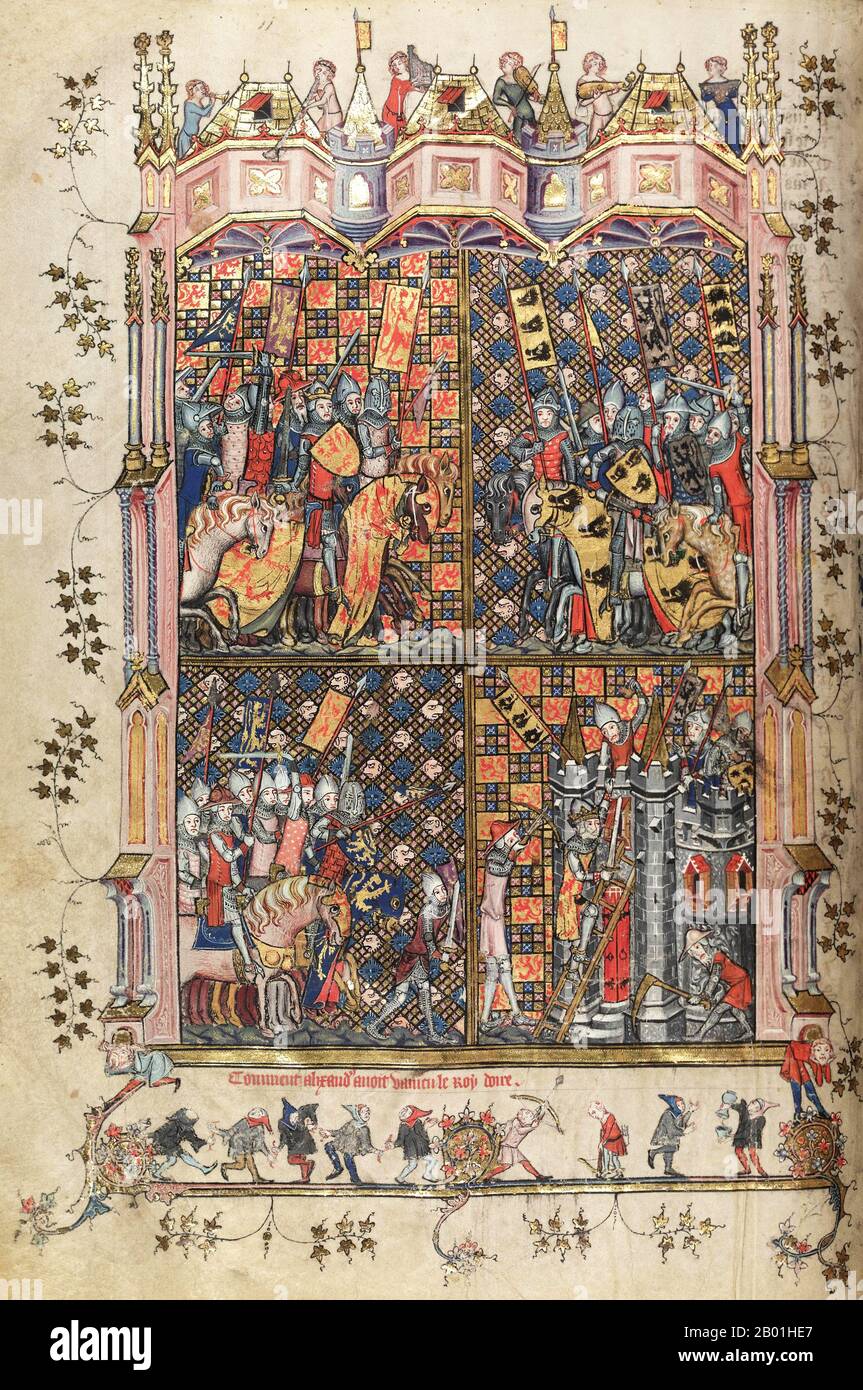 Comment alixand' auoit vaincu le Roy dore.
alamy
Image ID: 2B01HE7
www.alamy.com